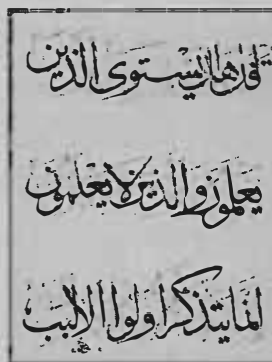 قل هل يستوى الذين
يعلمون والذين لا يعلمون
انما يتذكر اولوا الالبب